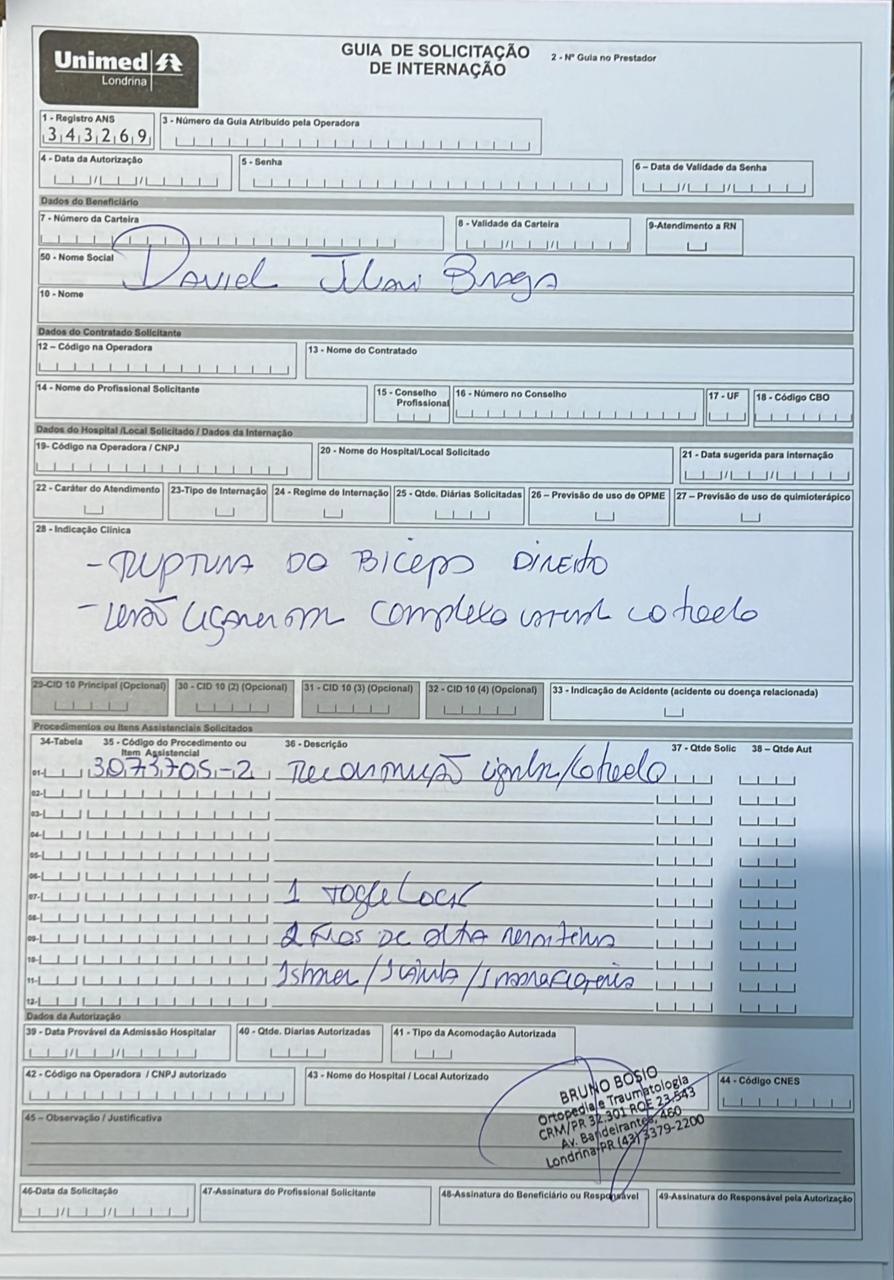 Unimed
Londrina
GUIA DE SOLICITAÇÃO
DE INTERNAÇÃO
2 - Nº Guia no Prestador
1 - Registro ANS
343269
3 - Número da Guia Atribuído pela Operadora
4 - Data da Autorização
5 - Senha
6 – Data de Validade da Senha
Dados do Beneficiário
7 - Número da Carteira
8 - Validade da Carteira
9-Atendimento a RN
50 - Nome Social
Braga
10 - Nome
Dados do Contratado Solicitante
12 – Código na Operadora
13 - Nome do Contratado
14 - Nome do Profissional Solicitante
15 - Conselho
Profissional
16 - Número no Conselho
17 - UF
18 - Código CBO
Dados do Hospital /Local Solicitado / Dados da Internação
19- Código na Operadora / CNPJ
20 - Nome do Hospital/Local Solicitado
21 - Data sugerida para internação
22 - Caráter do Atendimento
23-Tipo de Internação
24 - Regime de Internação
25 - Qtde. Diárias Solicitadas
26 – Previsão de uso de OPME
27 – Previsão de uso de quimioterápico
28 - Indicação Clínica
- RUPTURA DO BICEPS DIREITO
- Lesão ligamentar complexo lateral cotovelo
29-CID 10 Principal (Opcional)
30 - CID 10 (2) (Opcional)
31 - CID 10 (3) (Opcional)
32 - CID 10 (4) (Opcional)
33 - Indicação de Acidente (acidente ou doença relacionada)
Procedimentos ou Itens Assistenciais Solicitados
34-Tabela
35 - Código do Procedimento ou
Item Assistencial
36 – Descrição
37 - Qtde Solic
38 – Qtde Aut
01- 3073705-2 Reconstrução ligamentar/cotovelo
02-
03-
04-
05-
06-
07- 1 Togle Lock
08-
09- 2 Fios de alta resistencia
10-
11- 1 shaver/1 canula/1 radiofrequencia
12-
Dados da Autorização
39 - Data Provável da Admissão Hospitalar
40 - Qtde. Diarias Autorizadas
41 - Tipo da Acomodação Autorizada
42 - Código na Operadora / CNPJ autorizado
43 - Nome do Hospital / Local Autorizado
44 - Código CNES
BRUNO BOSIO
Ortopedia e Traumatologia
CRM/PR 32.301 RQE 23.543
Av. Bandeirantes, 460
Londrina-PR (43) 3379-2200
45 – Observação / Justificativa
46-Data da Solicitação
47-Assinatura do Profissional Solicitante
48-Assinatura do Beneficiário ou Responsável
49-Assinatura do Responsável pela Autorização